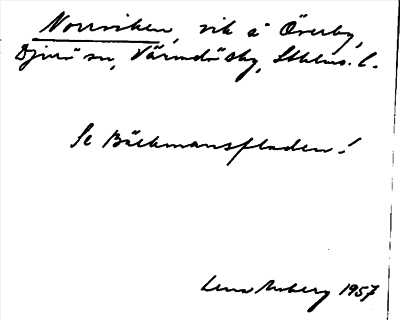 Norrviken, vik å Överby,
Djurö sn, Värmdö skg, Sthlms l.
Se Bäckmansfladen!
Lena 1957